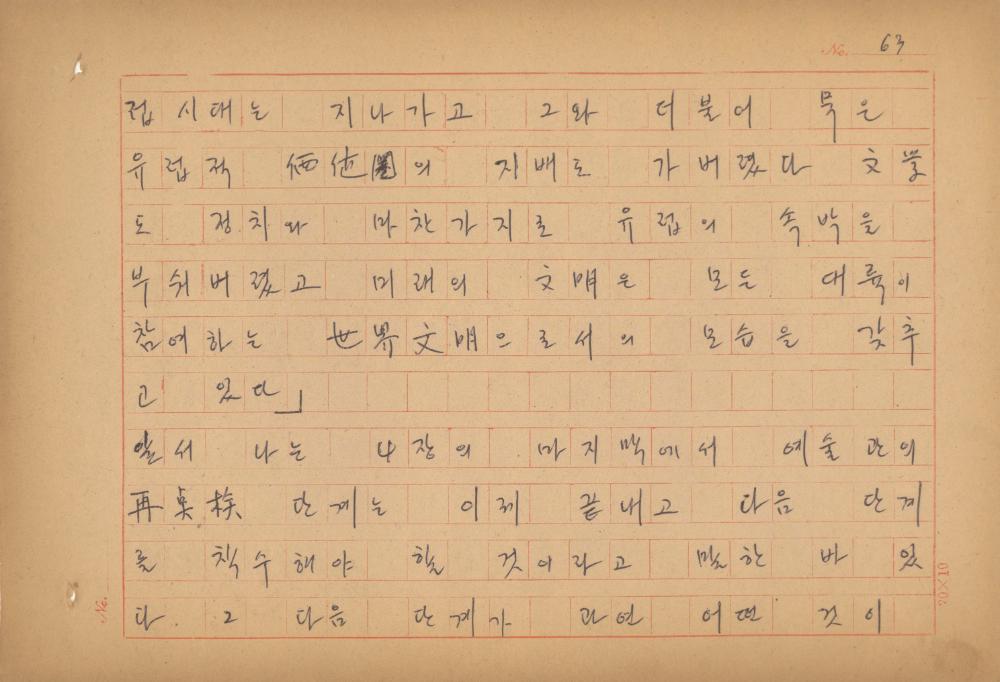 No. 63
럽 시대는 지나가고 그와 더불어 묵은
유럽적 価値圈의 지배도 가버렸다 文学
도 정치와 마찬가지로 유럽의 속박을
부숴버렸고 미래의 文明은 모든 대륙이
참여하는 世界文明으로서의 모습을 갖추
고 있다」
앞서 나는 4장의 마지막에서 예술관의
再点検 단계는 이제 끝내고 다음 단계
를 착수해야 할 것이라고 말한 바 있
다. 그 다음 단계가 과연 어떤 것이
No.
20×10